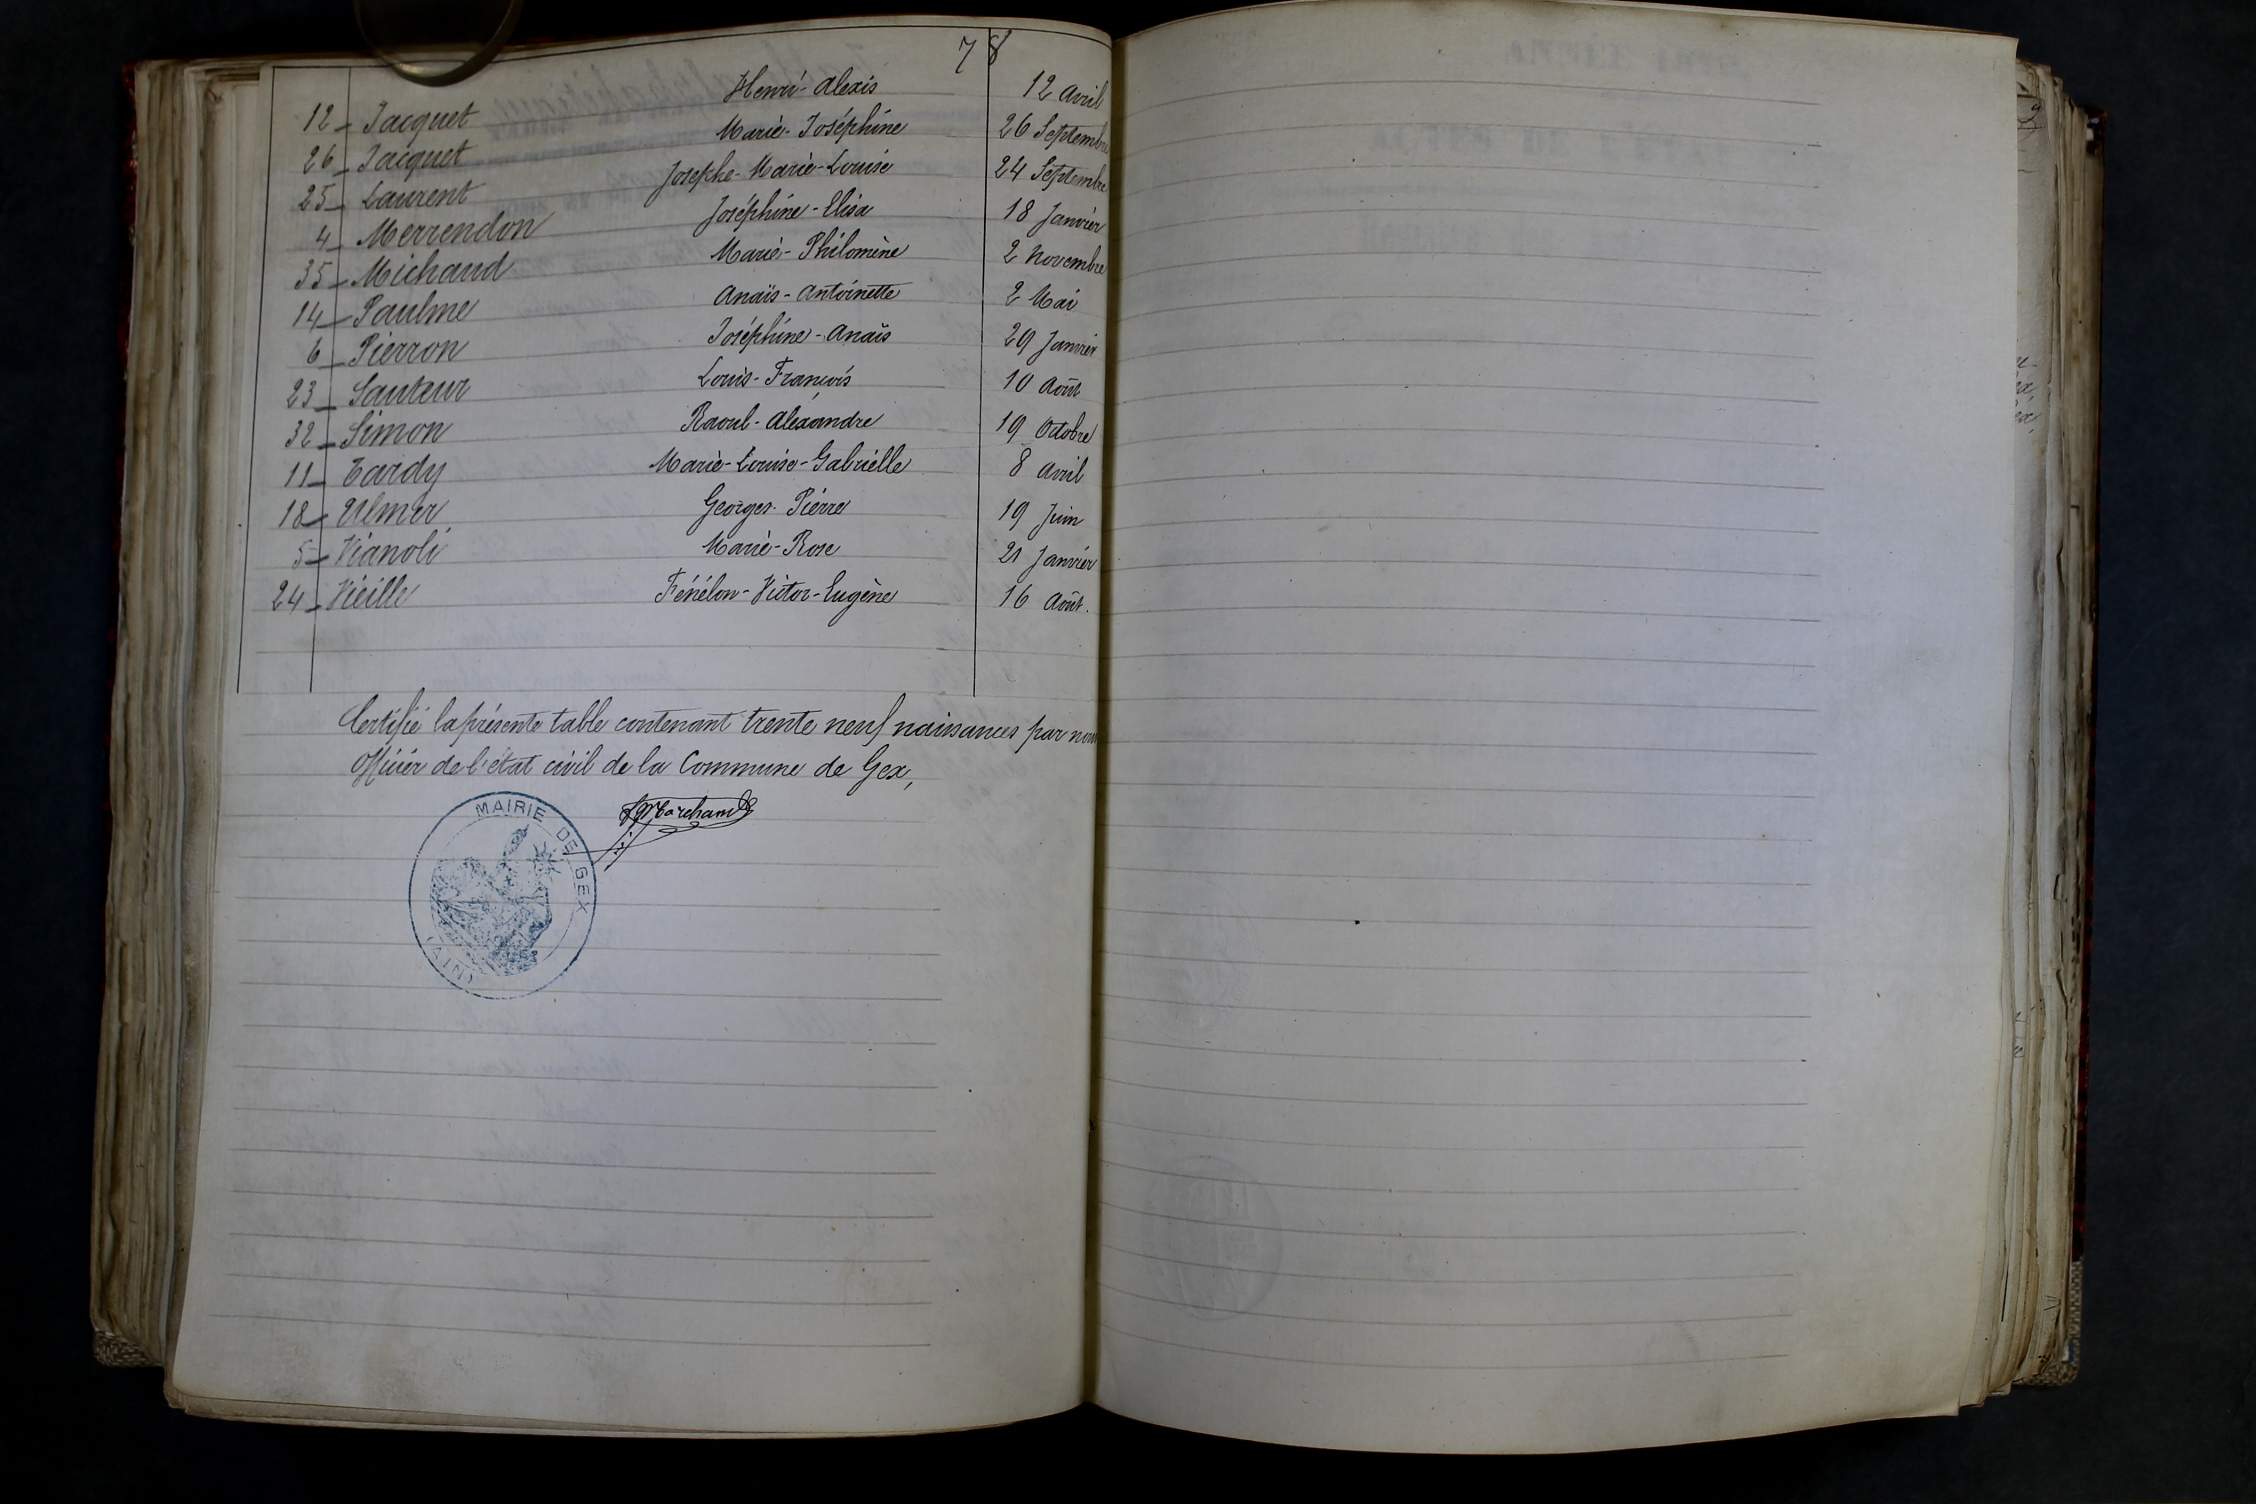 78
12 Jacquet Henri-Alexis 12 Avril
26 Jacquet Marie-Joséphine 26 Septembre
25 Laurent Josephe-Marie-Louise 24 Septembre
4 Merrendon Joséphine-Elisa 18 Janvier
35 Michaud Marie-Philomène 2 Novembre
14 Paulme Anaïs-Antoinette 2 Mai
6 Pierron Joséphine-Anaïs 29 Janvier
23 Sauteur Louis-François 10 Août
32 Simon Raoul-Alexandre 19 Octobre
11 Tardy Marie-Louise-Gabrielle 8 Avril
18 Ulmer Georges-Pierre 19 Juin
5 Vianoli Marie-Rose 21 Janvier
24 Vieille Fénélon-Victor-Eugène 16 Août.
Certifié la présente table contenant trente neuf naissances par nous
Officier de l'état civil de la Commune de Gex,
Marchand
MAIRIE DE GEX
(AIN)